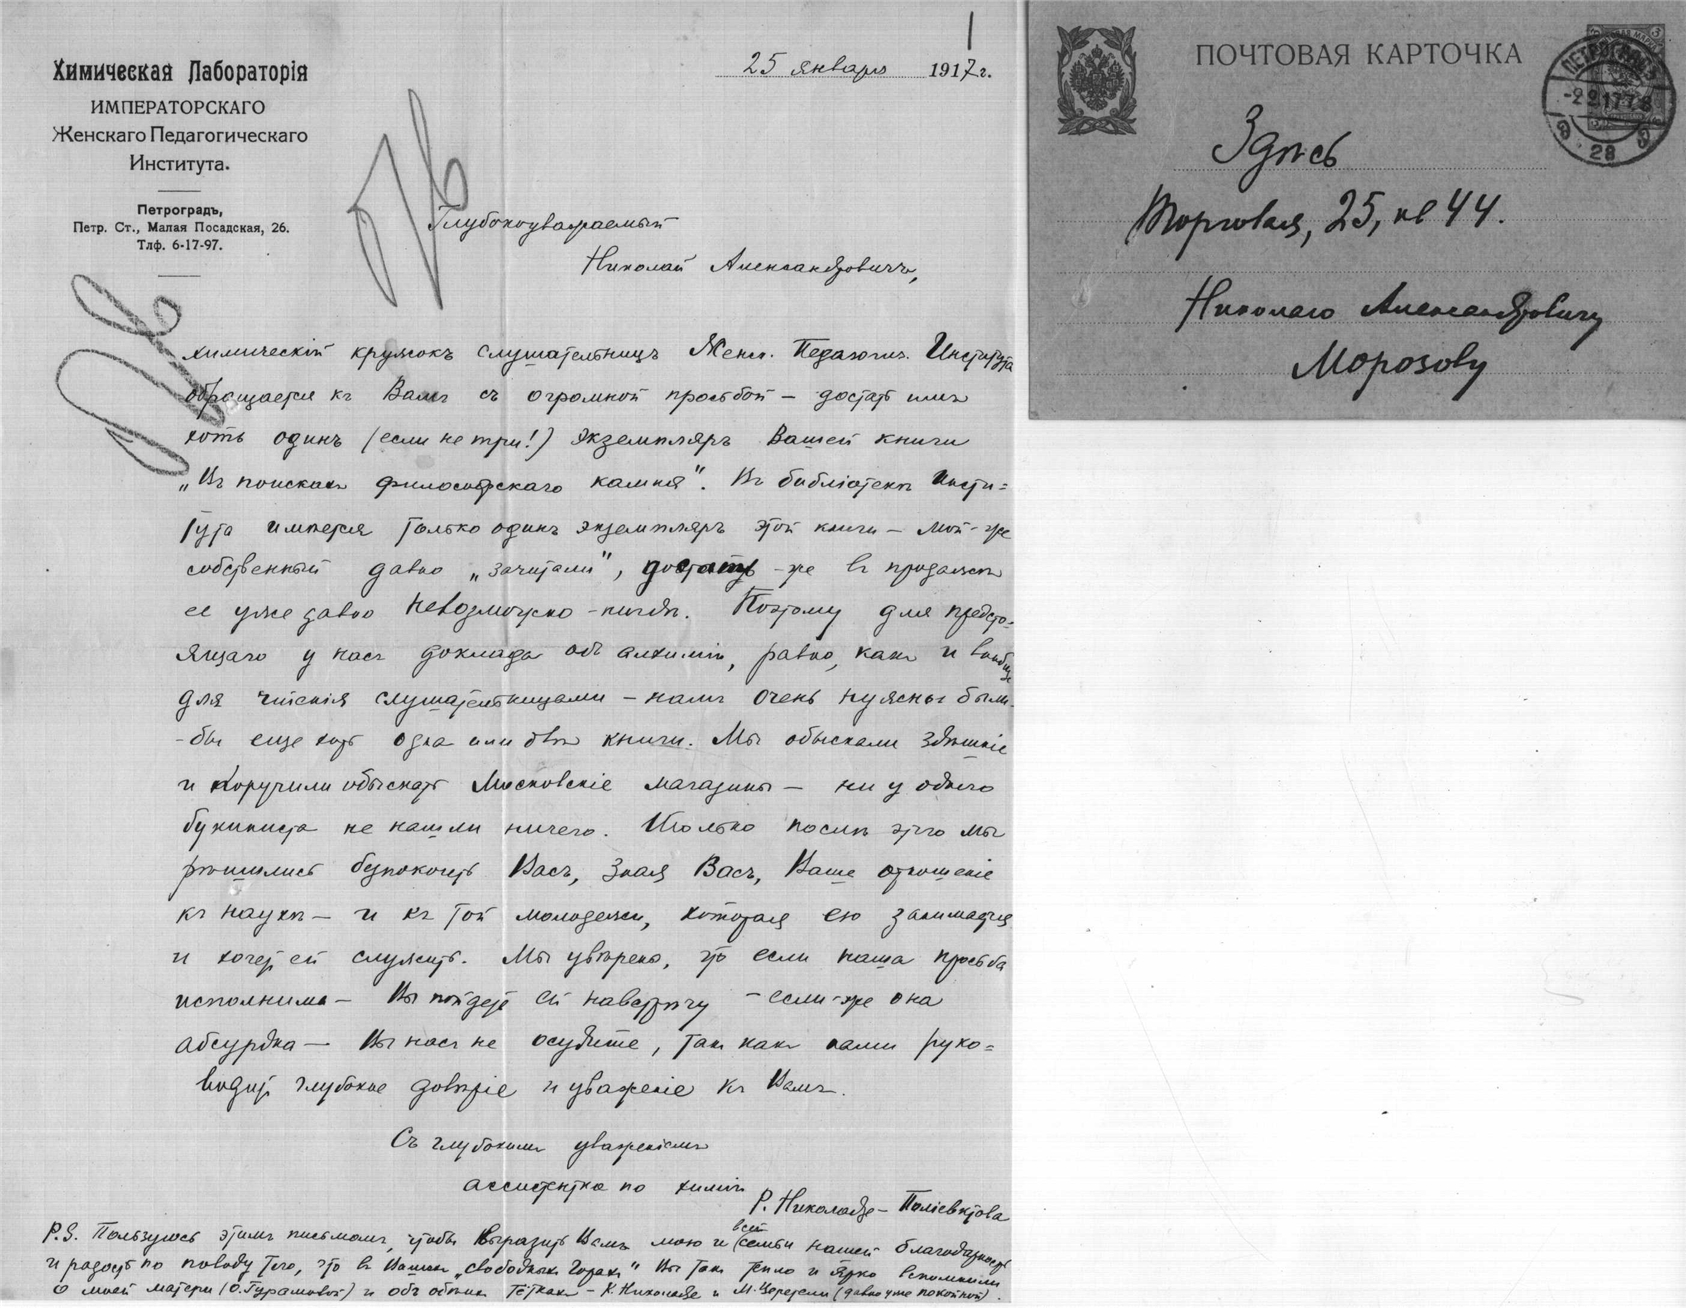 1
25 января 1917 г.
Химическая Лабораторія
ИМПЕРАТОРСКАГО
Женскаго Педагогическаго
Института.
Петроградъ,
Петр. Ст., Малая Посадская, 26.
Тлф. 6-17-97.
Глубокоуважаемый
Николай Александровичъ,
химическій кружокъ слушательницъ Женск. Педагогич. Института
обращается къ Вамъ съ огромной просьбой — достать имъ
хоть одинъ (если не три!) экземпляръ Вашей книги
„Въ поискахъ философскаго камня". Въ библіотекѣ Инсти=
тута имѣется только одинъ экземпляръ этой книги — мой-же
собственный давно „зачитали", достать-же въ продажѣ
ее уже давно невозможно-нигдѣ. Поэтому для предсто-
ящаго у насъ доклада объ алхиміи, равно, какъ и вообще
для чтенія слушательницами — намъ очень нужны были-
-бы еще хоть одна или двѣ книги. Мы обыскали здѣшніе
и поручили обыскать Московскіе магазины — ни у одного
букиниста не нашли ничего. Только послѣ этого мы
рѣшились безпокоить Васъ, зная Васъ, Ваше отношеніе
къ наукѣ — и къ той молодежи, которая ею занимается
и хочетъ ей служить. Мы увѣрены, что если наша просьба
исполнима — Вы пойдете ей навстрѣчу — если-же она
абсурдна — Вы насъ не осудите, такъ какъ нами руко=
водитъ глубокое довѣріе и уваженіе къ Вамъ.
Съ глубокимъ уваженіемъ
ассистентка по химіи
Р. Николадзе-Поліевктова
P.S. Пользуюсь этимъ письмомъ, чтобы выразить Вамъ мою и всей семьи нашей благодарность
и радость по поводу того, что въ Вашихъ „Свободныхъ Горахъ" Вы такъ тепло и ярко вспомнили
о моей матери (О. Гурамовой) и объ обѣихъ тёткахъ — К. Николадзе и М. Церетели (давно уже покойной).
ПОЧТОВАЯ КАРТОЧКА
ПЕТРОГРАДЪ
-2 2 17 7 8
28
Здѣсь
Торговая, 25, кв 44.
Николаю Александровичу
Морозову